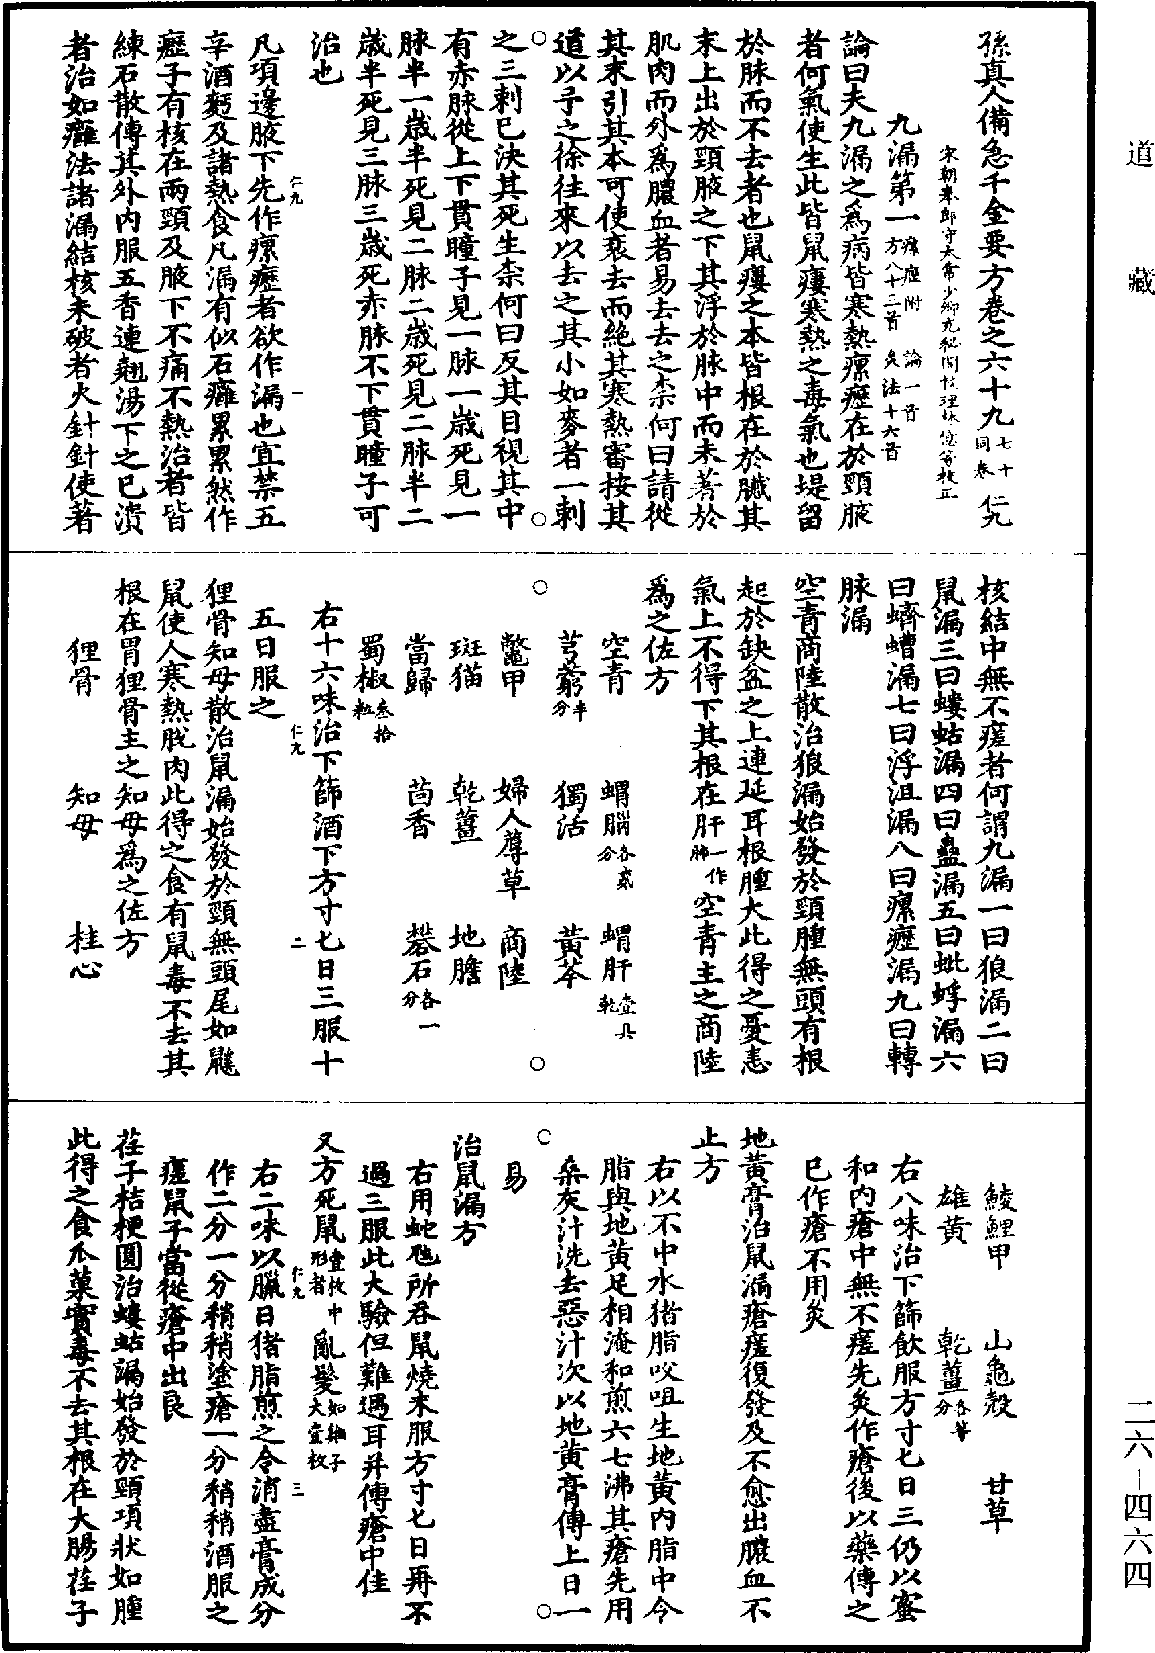 道藏
孫真人備急千金要方卷之六十九七十同卷 仁九
宋朝奉郎守太常少卿充秘閣校理林億等校正
九漏第一瘰癧附 論一首 方八十三首 灸法十六首
論曰夫九漏之為病皆寒熱瘰癧在於頸腋
者何氣使生此皆鼠瘻寒熱之毒氣也堤留
於脉而不去者也鼠瘻之本皆根在於臟其
末上出於頸腋之下其浮於脉中而未著於
肌肉而外為膿血者易去去之柰何曰請從
其末引其本可使衰去而絕其寒熱審按其
道以予之徐往來以去之其小如麥者一刺
之三刺已決其死生柰何曰反其目視其中
有赤脉從上下貫瞳子見一脉一歲死見一
脉半一歲半死見二脉二歲死見二脉半二
歲半死見三脉三歲死赤脉不下貫瞳子可
治也
凡項邊腋下先作瘰癧者欲作漏也宜禁五
仁九 一
辛酒麪及諸熱食凡漏有似石癰累累然作
癧子有核在兩頸及腋下不痛不熱治者皆
練石散傅其外內服五香連翹湯下之已潰
者治如癰法諸漏結核未破者火針針使著
核結中無不瘥者何謂九漏一曰狼漏二曰
鼠漏三曰螻蛄漏四曰蠱漏五曰蚍蜉漏六
曰蠐螬漏七曰浮沮漏八曰瘰癧漏九曰轉
脉漏
空青商陸散治狼漏始發於頸腫無頭有根
起於缺盆之上連延耳根腫大此得之憂恚
氣上不得下其根在肝一作肺空青主之商陸
為之佐方
空青 蝟腦各貳分 蝟肝壹具乾
芎藭半分 獨活 黃芩
鼈甲 婦人蓐草 商陸
斑猫 乾薑 地膽
當歸 茴香 礜石各一分
蜀椒叁拾粒
右十六味治下篩酒下方寸匕日三服十
五日服之
仁九 二
狸骨知母散治鼠漏始發於頸無頭尾如鼷
鼠使人寒熱脫肉此得之食有鼠毒不去其
根在胃狸骨主之知母為之佐方
狸骨 知母 桂心
鯪鯉甲 山龜殼 甘草
雄黃 乾薑各等分
右八味治下篩飲服方寸匕日三仍以蜜
和內瘡中無不瘥先灸作瘡後以藥傅之
已作瘡不用灸
地黃膏治鼠漏瘡瘥復發及不愈出膿血不
止方
右以不中水猪脂㕮咀生地黃內脂中令
脂與地黃足相淹和煎六七沸其瘡先用
桑灰汁洗去惡汁次以地黃膏傅上日一
易
治鼠漏方
右用蛇虺所吞鼠燒末服方寸匕日再不
過三服此大驗但難遇耳并傅瘡中佳
又方死鼠壹枚中形者 亂髮如雞子大壹枚
右二味以臘日猪脂煎之令消盡膏成分
仁九 三
作二分一分稍稍塗瘡一分稍稍酒服之
瘥鼠子當從瘡中出良
荏子桔梗圓治螻蛄漏始發於頸項狀如腫
此得之食瓜菓實毒不去其根在大腸荏子
二六－四六四